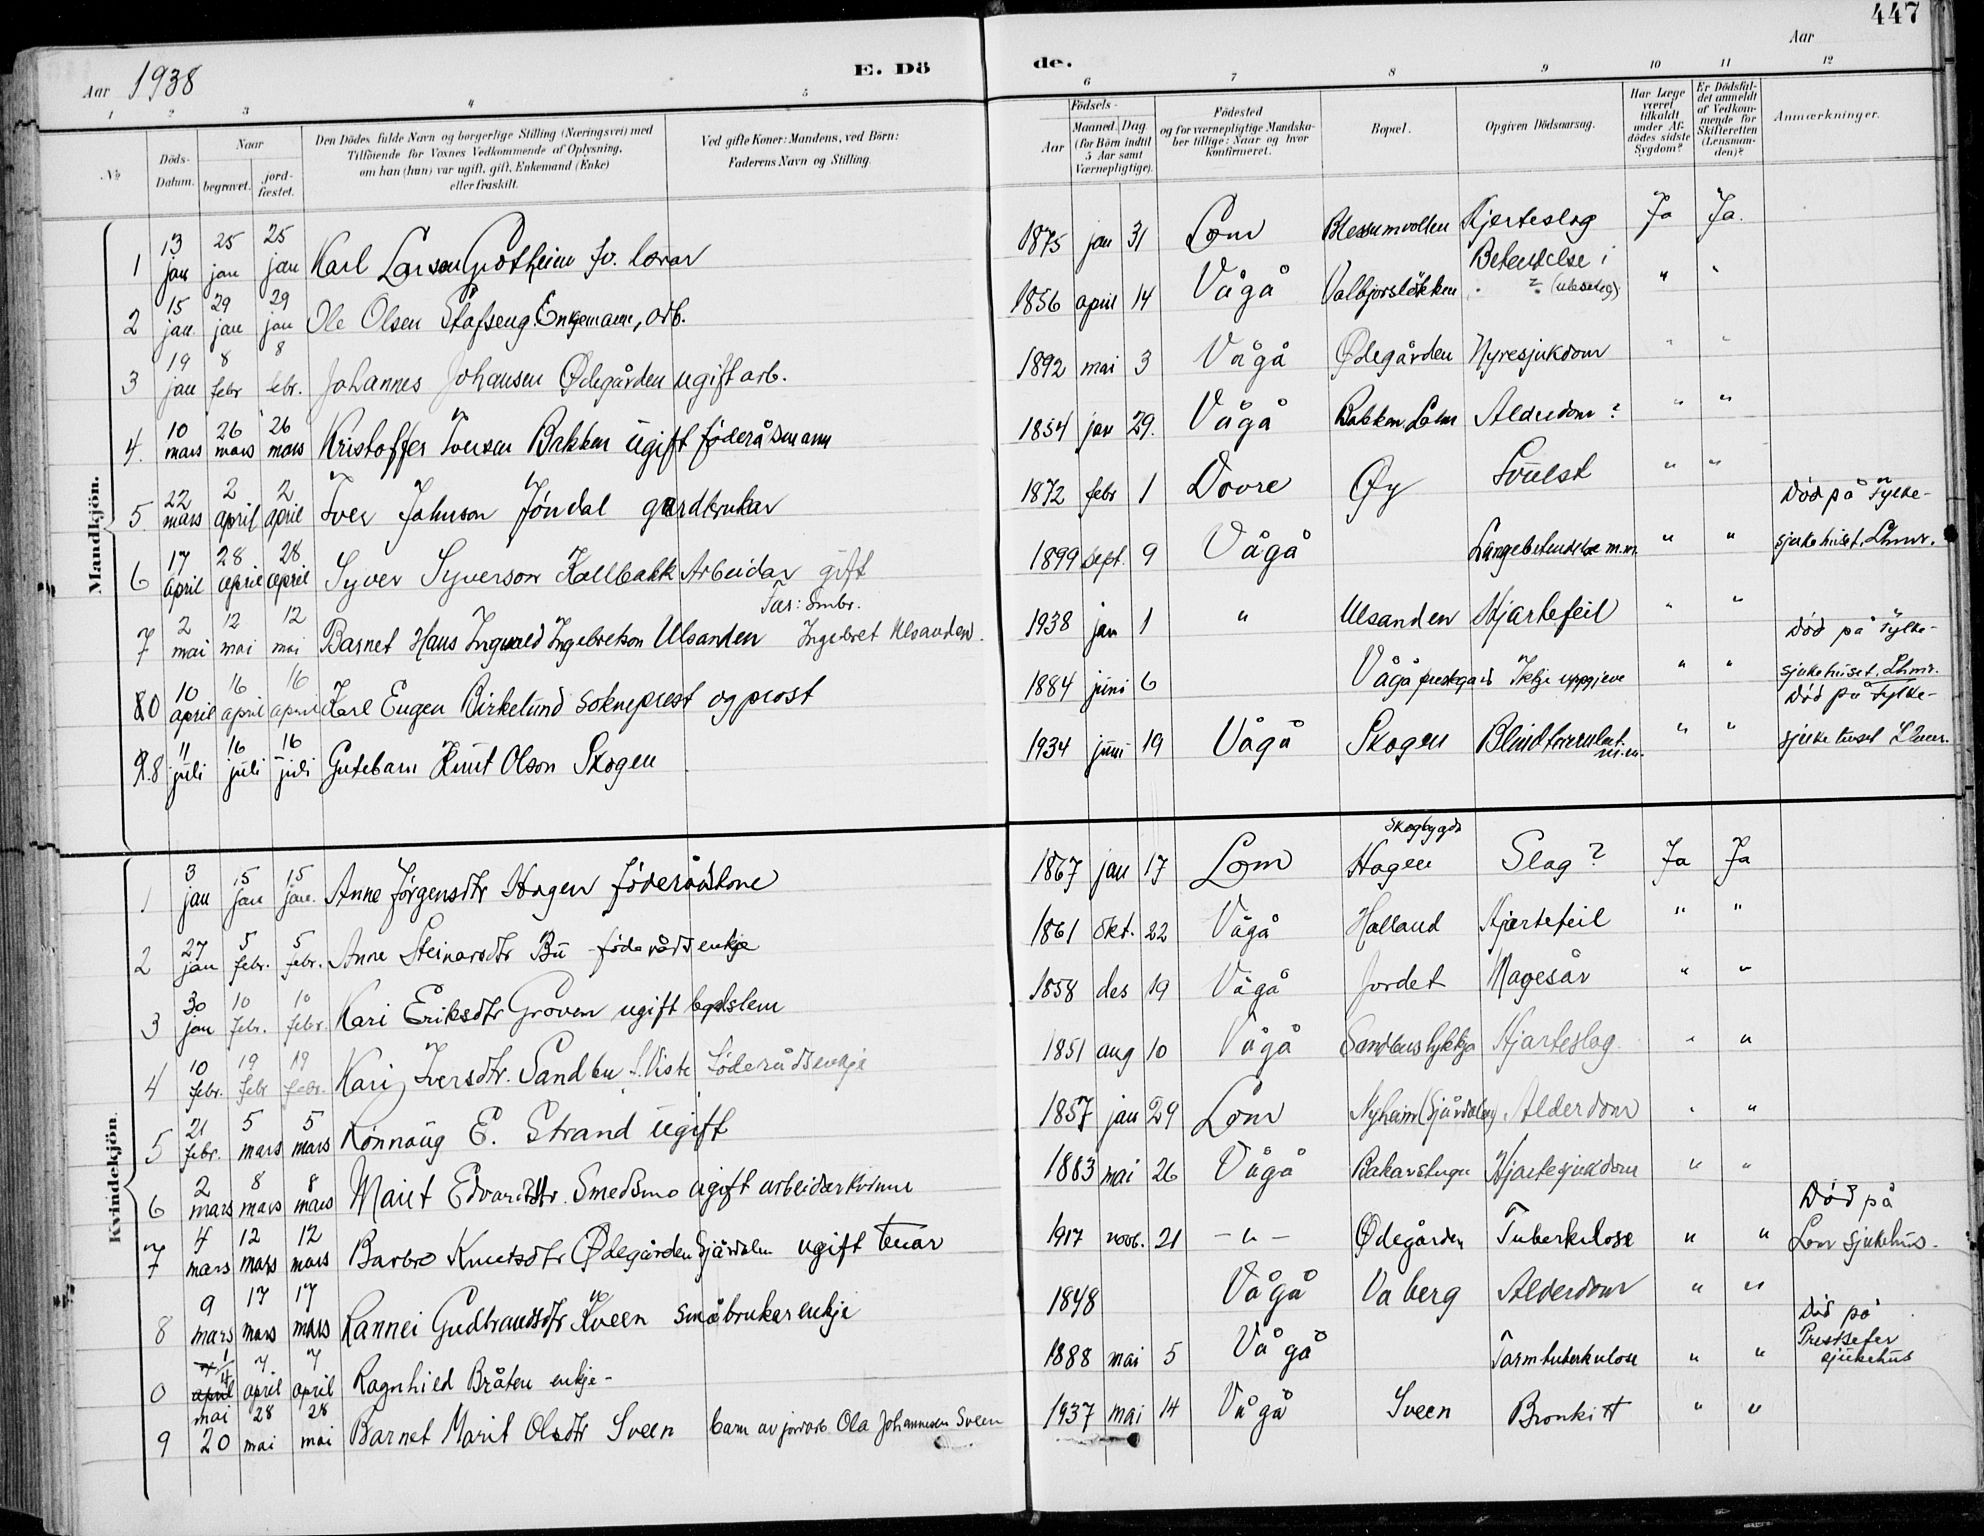 447
Aar 1938
E. Dö de.
Aar
1 2 3 4 5 6 7 8 9 10 11 12
No
Döds-Datum.
Naar
begravet.
jord-fæstet.
Den Dödes fulde Navn og borgerlige Stilling (Næringsvei) med
Tilföiende for Voxnes Vedkommende af Oplysning,
om han (hun) var ugift, gift, Enkemand (Enke)
eller fraskilt.
Ved gifte Koner: Mandens, ved Börn:
Faderens Navn og Stilling.
Födsels-
Aar
Maaned. Dag
(for Börn indtil
5 Aar samt
Værnepligtige).
Födested
og for værnepligtige Mandska-
ber tillige: Naar og hvor
konfirmeret.
Bopæl.
Opgiven Dödsaarsag.
Har Læge
været
tilkaldt
under Af-
dödes sidste
Sygdom?
Er Dödsfal-
det anmeldt
af Vedkom-
mende for
Skifteretten
(Lensman-
den)?
Anmærkninger.
Mandkjön.
1 13 jan 25 jan 25 jan Karl Larsen Grotheim fv. lærar 1875 jan 31 Lom Blessumvollen Hjerteslag Ja Ja.
2 15 jan 29 jan 29 jan Ole Olsen Stafseng Enkjemann, arb. 1856 april 14 Vågå Valbjorsløkken Betendelse i ? " "
3 19 jan 8 febr 8 febr. Johannes Johansen Ødegården ugift arb. 1892 mai 3 Vågå Ødegården Nyresjukdom " "
4. 10 mars 26 mars 26 mars Kristoffer Iversen Bakken ugift føderådsmann 1854 jan 29. Vågå Bakken Lalm Alderdom? " "
5 22 mars 2 april 2 april Iver Johnson Jøndal gardbrukar 1872 febr 1 Dovre Øy Svulst " "
6 17 april 28 april 28 april Syver Syverson Kallbakk Arbeidar gift 1899 sept. 9 Vågå Lungebetendelse m.m. " " Død på Fylke-
sjukehuset, Lhmr.
7 2 mai 12 mai 12 mai Barnet Hans Ingvald Ingebretson Ulsanden Far: smbr. Ingebret Ulsanden. 1938 jan 1 " Ulsanden Hjartefeil " "
0 10 april 16 april 16 april Karl Eugen Birkelund sokneprest og prost 1884 juni 6 Vågå prestgard Ikkje uppgjeve " " Død på Fylke-
sjukehuset, Lhmr.
8 11 juli 16 juli 16 juli Gutebarn Knut Olson Skogen 1934 juni 19 Vågå Skogen Blindtarmbet. m.m. " " Død på Fylke-
sjukehuset Lhmr.
Kvindekjön
1 3 jan 15 jan 15 jan. Anne Jørgensdtr Hagen føderådskone 1867 jan 17 Lom Skogbygda Hagen Slag? Ja Ja
2 27 jan 5 febr. 5 febr. Anne Steinarsdtr Bu føderådsenkje 1861 okt. 22 Vågå Halland Hjartefeil " "
3 30 jan 10 febr. 10 febr Kari Eriksdtr Groven ugift bygdslem 1858 des 19 Vågå Jordet Magesår " "
4 10 febr. 19 febr 19 febr. Kari Iversdtr. Sandbu S. Viste Føderådsenkje 1851 aug 10 Vågå Sandbulykkja Hjarteslag. " "
5 21 febr. 5 mars 5 mars Rønnaug E. Strand ugift 1857 jan 29 Lom Nyheim (Sjårdalen) Alderdom " "
6 2 mars 8 mars 8 mars Marit Edvardsdtr. Smedsmo ugift arbeidarkvinne 1883 mai 26 Vågå Bakarstugu Hjartesjukdom " "
7 4 mars 12 mars 12 mars Barbro Knutsdtr Ødegården Sjårdalen ugift tenar 1917 novb. 21 – " – Ødegården Tuberkulose " " Død på
Lom sjukehus.
8 9 mars 17 mars 17 mars Rannei Gudbrandsdtr Kveen småbrukarenkje 1848 Vågå Vaberg Alderdom " "
0 1/4 april 7 april 7 april Ragnhild Bråten enkje - 1888 mai 5 Vågå Tarmtuberkulose " " Død på
Prestseter
sjukehus
9 mai 20 28 mai 28 mai Barnet Marit Olsdtr Sveen barn av jordarb. Ola Johannesen Sveen 1937 mai 14 Vågå Sveen Bronkitt " "